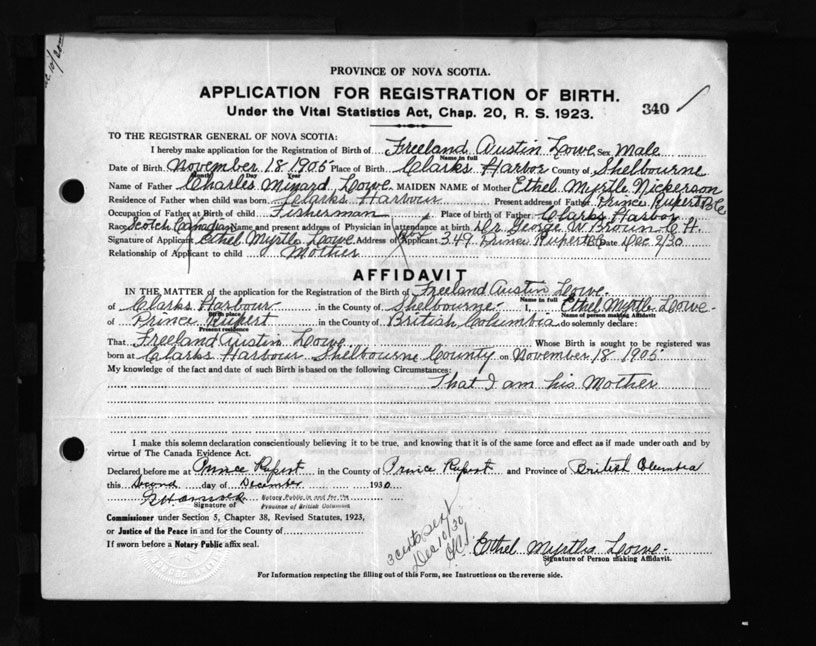 Dec 10/30
PROVINCE OF NOVA SCOTIA.
APPLICATION FOR REGISTRATION OF BIRTH.
340
Under the Vital Statistics Act, Chap. 20, R. S. 1923.
TO THE REGISTRAR GENERAL OF NOVA SCOTIA:
I hereby make application for the Registration of Birth of Freeland Austin Lowe Sex Male
Name in full
Date of Birth November 18 1905 Place of Birth Clarks Harbor County of Shelbourne
Month Day Year
Name of Father Charles Minard Lowe MAIDEN NAME of Mother Ethel Myrtle Nickerson
Residence of Father when child was born Clarks Harbour Present address of Father Prince Rupert B.C.
Occupation of Father at Birth of child Fisherman Place of birth of Father Clarks Harbor
Race Scotch Canadian Name and present address of Physician in attendance at birth Dr George W Brown C.H.
Signature of Applicant Ethel Myrtle Lowe Address of Applicant 349 Prince Rupert Date Dec 2/30
Relationship of Applicant to child Mother
AFFIDAVIT
IN THE MATTER of the application for the Registration of the Birth of Freeland Austin Lowe
Name in full
of Clarks Harbour in the County of Shelbourne I, Ethel Myrtle Lowe
Birth place Name of person making Affidavit
of Prince Rupert in the County of British Columbia do solemnly declare:
Present residence
That Freeland Austin Lowe Whose Birth is sought to be registered was
born at Clarks Harbour Shelbourne County on November 18 1905
My knowledge of the fact and date of such Birth is based on the following Circumstances:
That I am his Mother
I make this solemn declaration conscientiously believing it to be true, and knowing that it is of the same force and effect as if made under oath and by
virtue of The Canada Evidence Act.
Declared before me at Prince Rupert in the County of Prince Rupert and Province of British Columbia
this Second day of December 1930
Notary Public in and for the
Signature of Province of British Columbia
Commissioner under Section 5, Chapter 38, Revised Statutes, 1923,
or Justice of the Peace in and for the County of
If sworn before a Notary Public affix seal.
3 certs sent
Dec 10/30
Ethel Myrtle Lowe
Signature of Person making Affidavit.
For Information respecting the filling out of this Form, see Instructions on the reverse side.